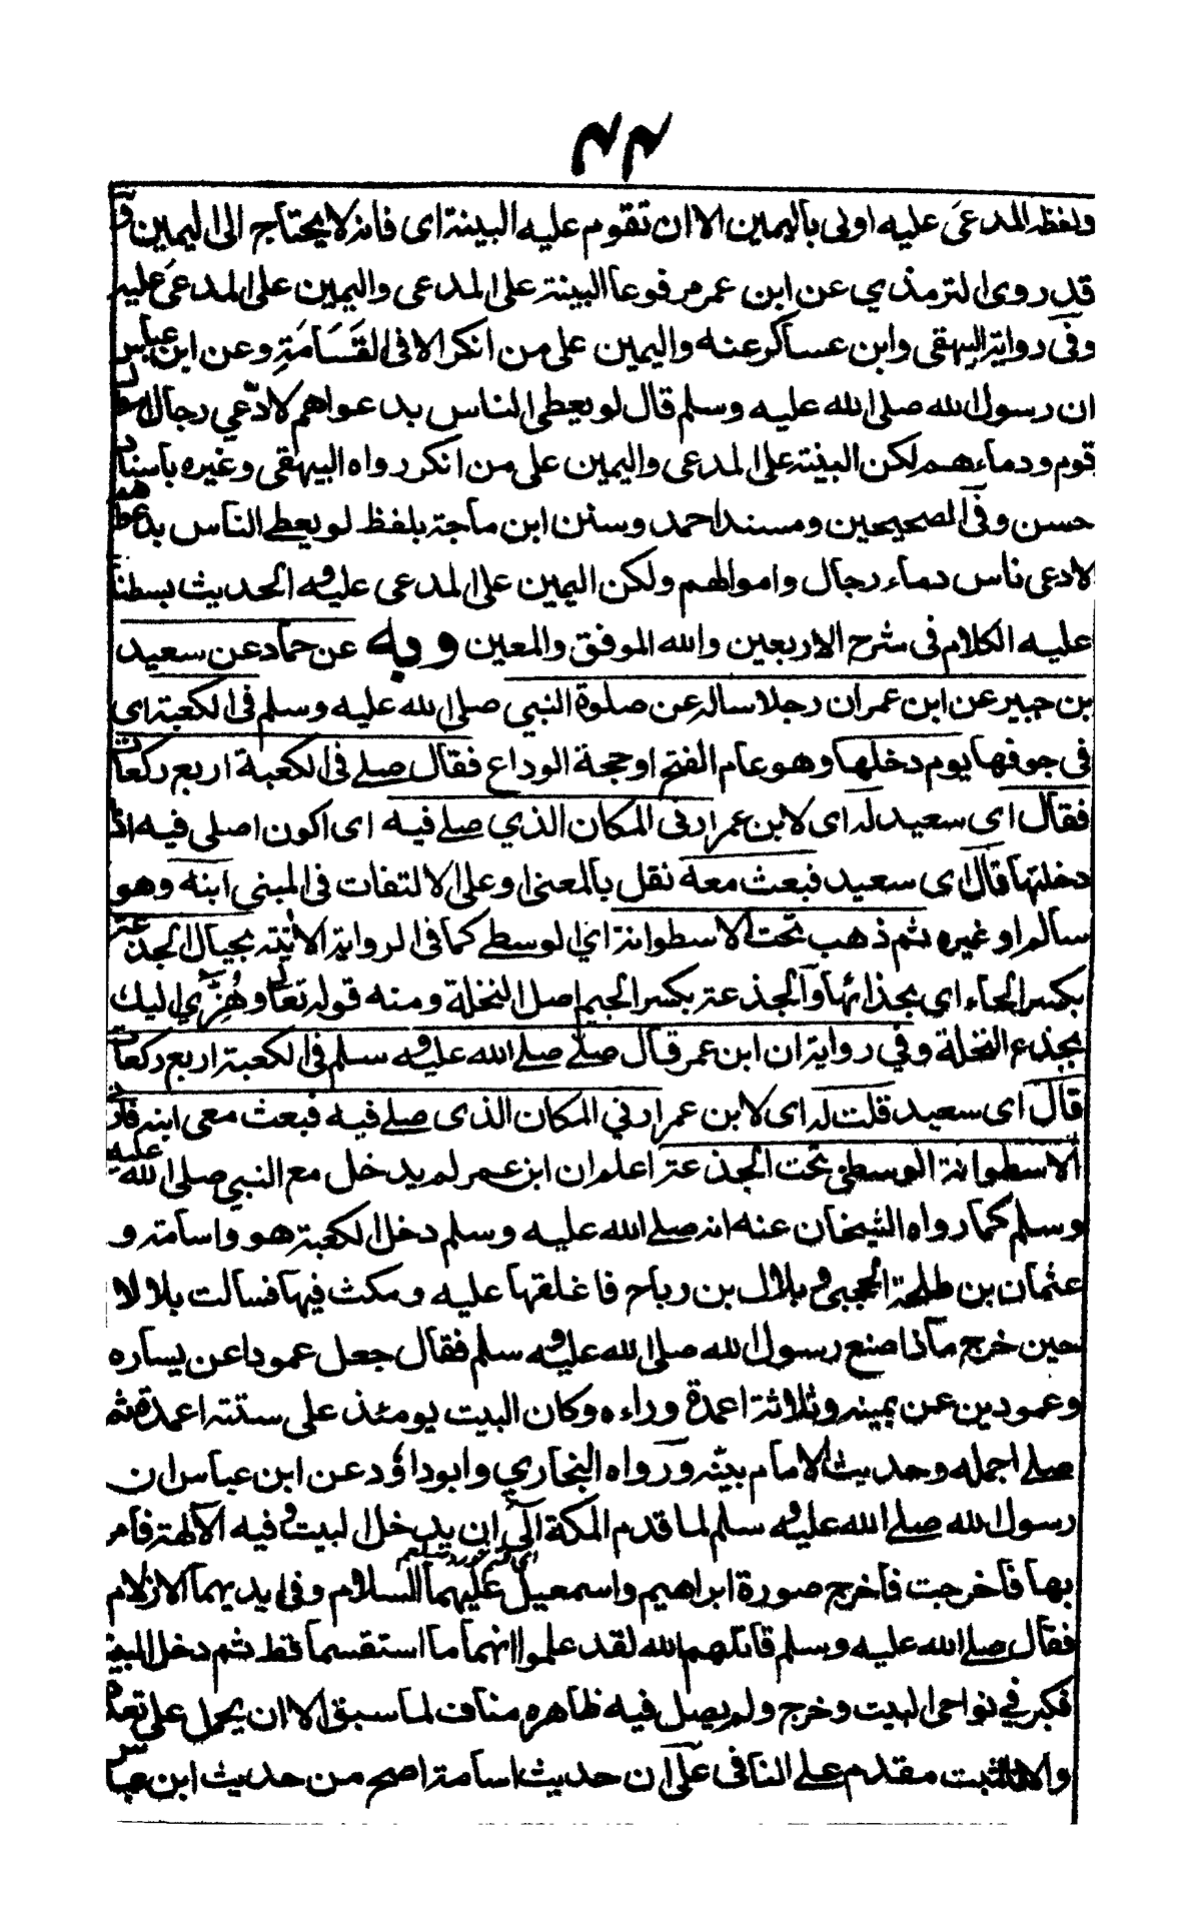 ٤٤
ولفظه المدعى عليه اولى باليمين الا ان تقوم عليه البينة اى فانه لا يحتاج الى اليمين و
قد روى الترمذي عن ابن عمر مرفوعا البينة على المدعى واليمين على المدعى عليه
وفى رواية البيهقى وابن عساكر عنه واليمين على من انكر الا فى القسامة وعن ابن عباس
ان رسول الله صلى الله عليه وسلم قال لو يعطى الناس بدعواهم لادّعي رجال اموال
قوم ودماءهم لكن البينة على المدعى واليمين على من انكر رواه البيهقى وغيره باسناد
حسن وفى الصحيحين ومسند احمد وسنن ابن ماجة بلفظ لو يعطى الناس بدعواهم
لادعى ناس دماء رجال واموالهم ولكن اليمين على المدعى عليه وفيه الحديث بسطنا
عليه الكلام فى شرح الاربعين والله الموفق والمعين وبه عن حماد عن سعيد
بن جبير عن ابن عمر ان رجلا ساله عن صلوة النبي صلى الله عليه وسلم فى الكعبة اى
فى جوفها يوم دخلها وهو عام الفتح او حجة الوداع فقال صلى فى الكعبة اربع ركعات
فقال اى سعيد له اى لابن عمر ارنى المكان الذي صلى فيه اى اكون اصلى فيه اذا
دخلتها قال اى سعيد فبعث معه نقل بالمعنى او على الالتفات فى المبنى ابنه وهو
سالم او غيره ثم ذهب تحت الاسطوانة اي الوسطى كما فى الرواية الاتية بحيال الجذعة
بكسر الحاء اى بحذائها والجذعة بكسر الجيم اصل النخلة ومنه قوله تعالى وهزي اليك
بجذع النخلة وفي رواية ان ابن عمر قال صلى صلى الله عليه وسلم فى الكعبة اربع ركعات
قال اى سعيد قلت له اى لابن عمر ارني المكان الذى صلى فيه فبعث معى ابنه فارانى
الاسطوانة الوسطى تحت الجذعة اعلم ان ابن عمر لم يدخل مع النبي صلى الله عليه
وسلم كما رواه الشيخان عنه انه صلى الله عليه وسلم دخل الكعبة هو واسامة و
عثمان بن طلحة الحجبى وبلال بن رباح فاغلقها عليه ومكث فيها فسالت بلالا
حين خرج ماذا صنع رسول الله صلى الله عليه وسلم فقال جعل عمودا عن يساره
وعمودين عن يمينه وثلاثة اعمدة وراءه وكان البيت يومئذ على ستة اعمدة ثم
صلى اجمله وحديث الامام بينه ورواه البخاري وابو داؤد عن ابن عباس ان
رسول الله صلى الله عليه وسلم لما قدم المكة ابى ان يدخل البيت وفيه الآلهة فامر
بها فاخرجت فاخرج صورة ابراهيم واسمعيل عليهما السلام وفى ايديهما الازلام
فقال صلى الله عليه وسلم قاتلهم الله لقد علموا انهما ما استقسما قط ثم دخل البيت
فكبر في نواحى البيت وخرج ولم يصل فيه ظاهره مناف لما سبق الا ان يحمل على تعدد
والا فالمثبت مقدم على النافى على ان حديث اسامة اصح من حديث ابن عباس